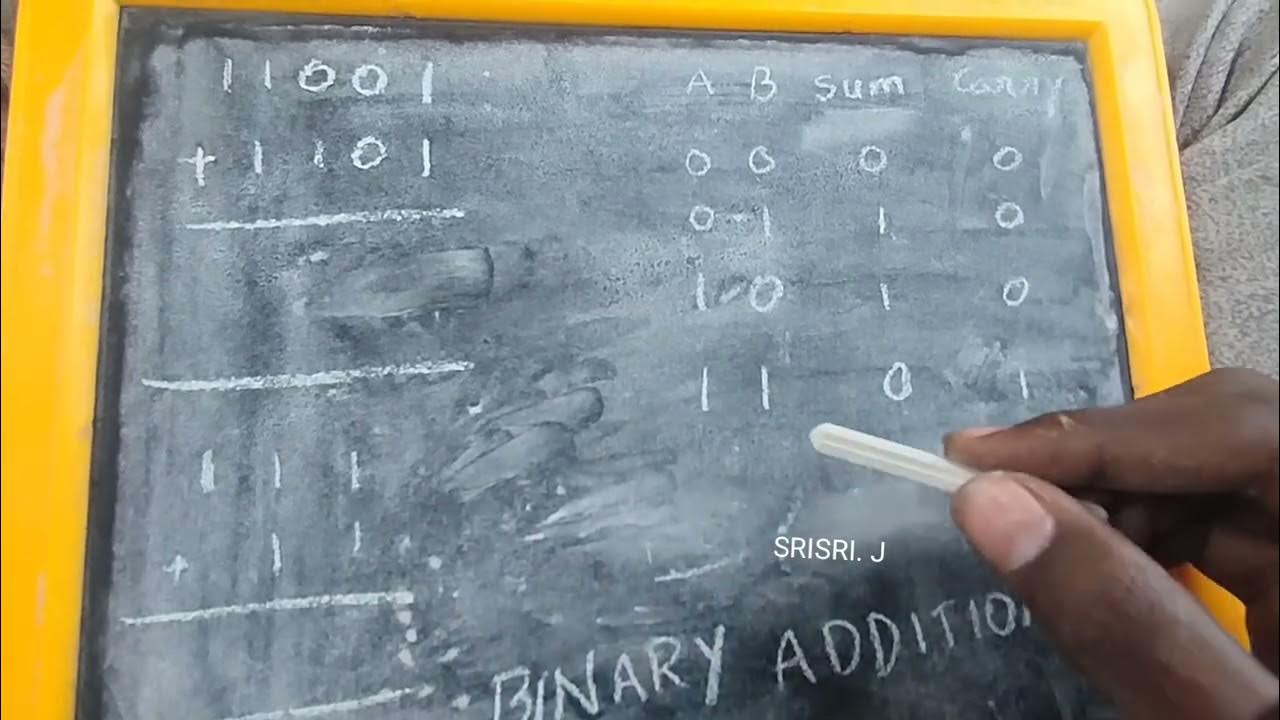 11001
+ 1101
111
+ 11
A B Sum Carry
0 0 0 0
0 1 1 0
1 0 1 0
1 1 0 1
SRISRI. J
BINARY ADDITION